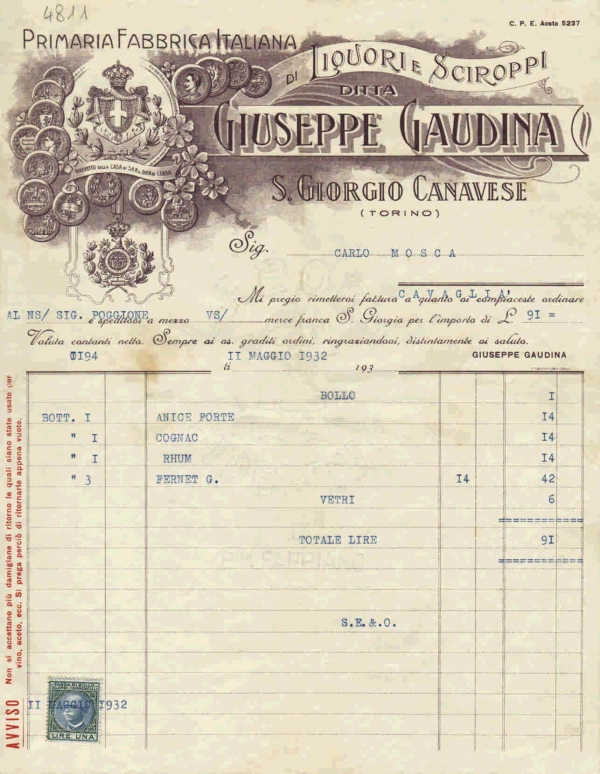 4811
C. P. E. Aosta 5237
PRIMARIA FABBRICA ITALIANA
DI LIQUORI E SCIROPPI
DITTA
GIUSEPPE GAUDINA
BREVETTO DELLA CASA DI S.A.R. IL DUCA DI GENOVA
S. GIORGIO CANAVESE
(TORINO)
Sig. CARLO MOSCA
CAVAGLIA'
Mi pregio rimetterVi fattura di quanto vi compiaceste ordinare
AL NS/ SIG. POGGIONE e speditovi a mezzo VS/ merce franca S. Giorgio per l'importo di L. 91 =
Valuta contanti netto. Sempre ai vs. graditi ordini, ringraziandovi, distintamente vi saluto.
GIUSEPPE GAUDINA
li 11 MAGGIO 1932 193
BOLLO 1
BOTT. I ANICE FORTE 14
" I COGNAC 14
" I RHUM 14
" 3 FERNET G. 14 42
VETRI 6
TOTALE LIRE 91
S.E.&.O.
AVVISO Non si accettano più damigiane di ritorno le quali siano state usate per
vino, aceto, ecc. Si prega perciò di ritornarle appena vuote.
II MAGGIO 1932
LIRE UNA